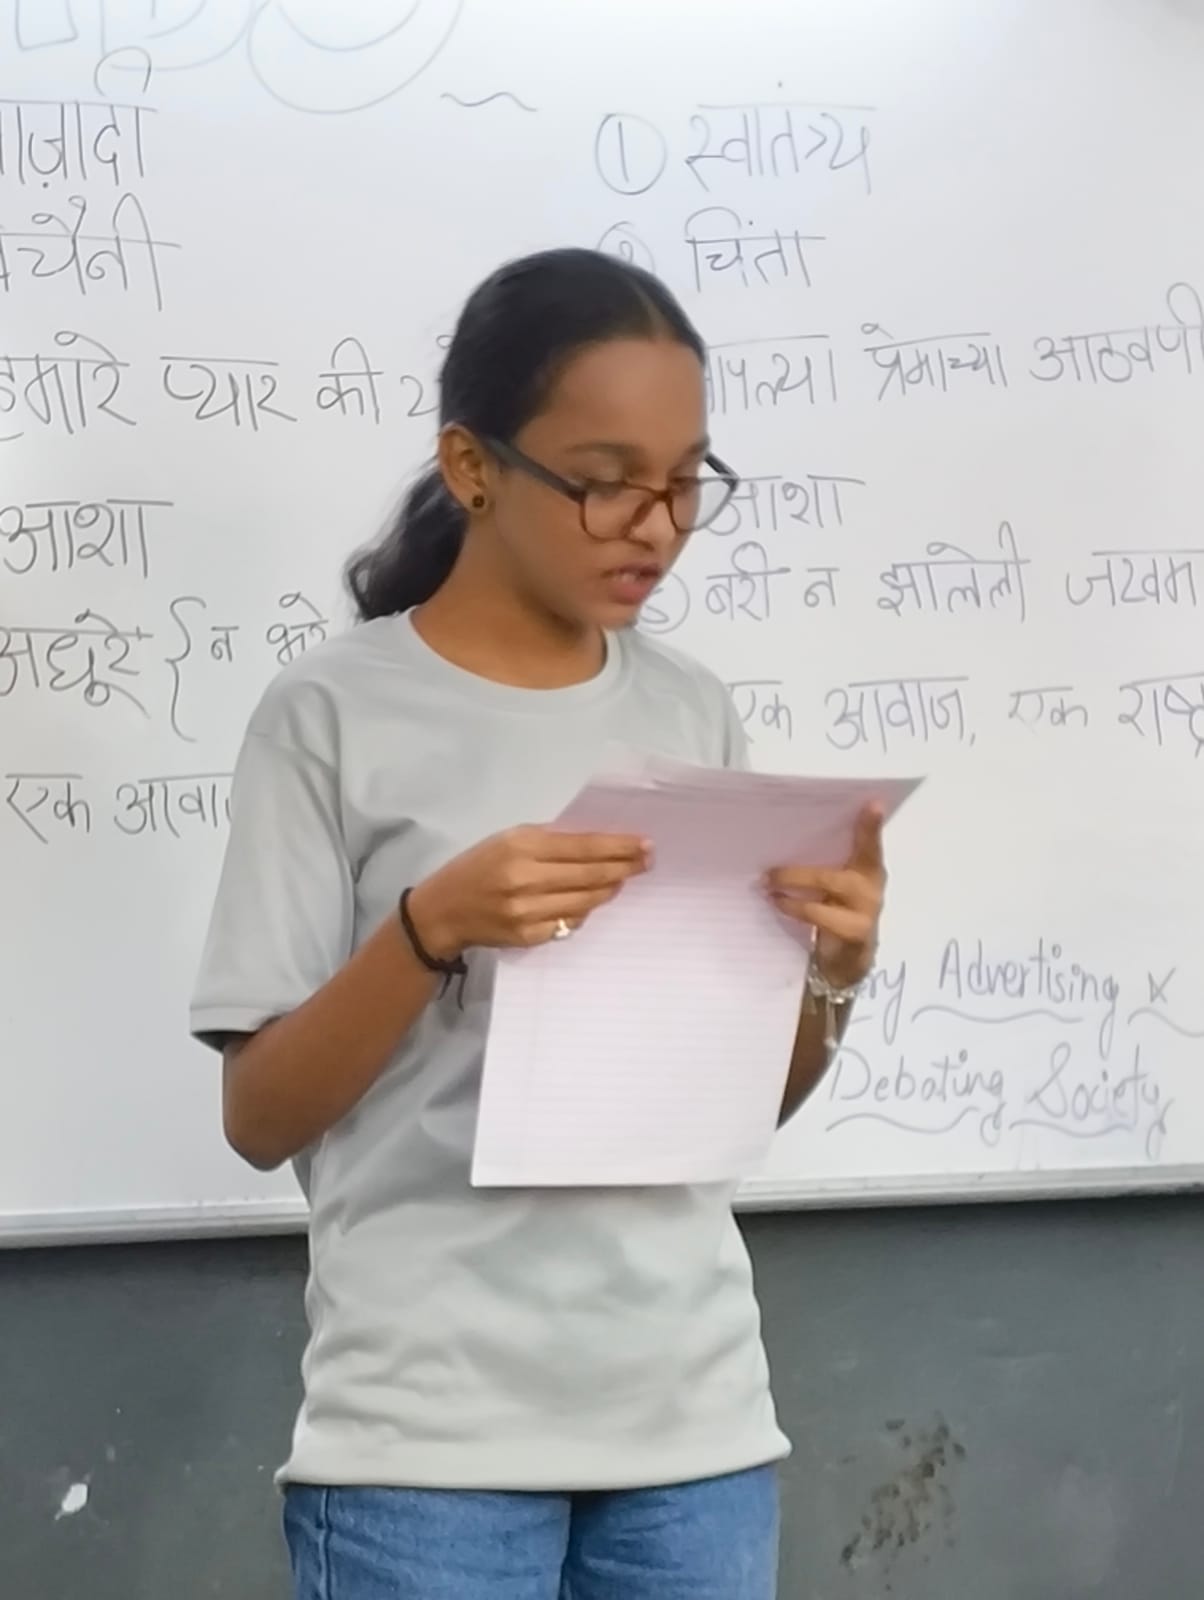 ाज़ादी
चैनी
हमारे प्यार की य
आशा
अधूरे { न भरे
एक आवा
① स्वातंत्र्य
② चिंता
आपल्या प्रेमाच्या आठवणी
आशा
⑤ बरी न झालेली जखम
एक आवाज, एक राष्ट्र
ry Advertising x
Debating Society